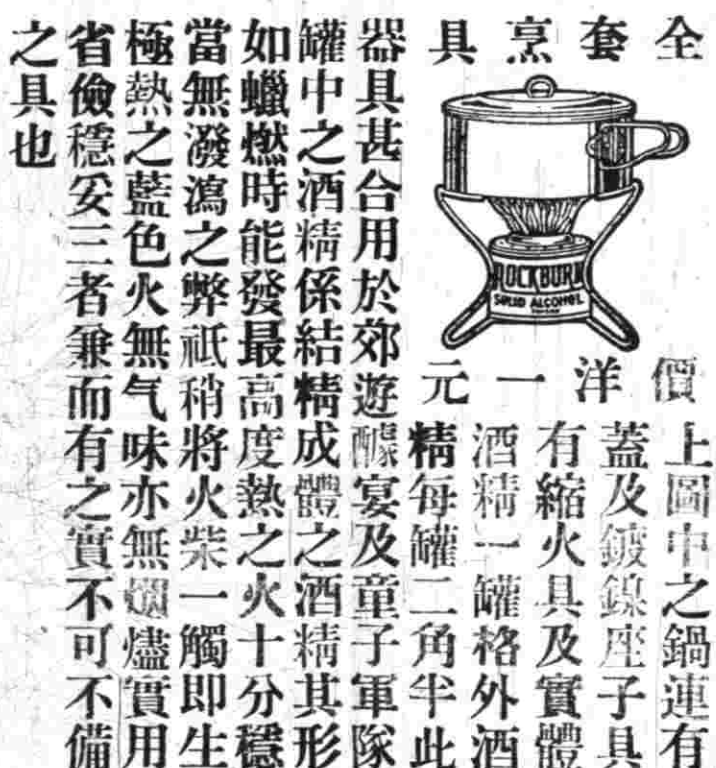 全套烹具
ROCKBURN
SOLID ALCOHOL
價洋一元
上圖中之鍋連有
蓋及鍍鎳座子具
有縮火具及實體
酒精一罐格外酒
精每罐二角半此
器具甚合用於郊遊醵宴及童子軍隊
罐中之酒精係結精成體之酒精其形
如蠟燃時能發最高度熱之火十分穩
當無潑瀉之弊祇稍將火柴一觸即生
極熱之藍色火無气味亦無烟燼實用
省儉穩妥三者兼而有之實不可不備
之具也